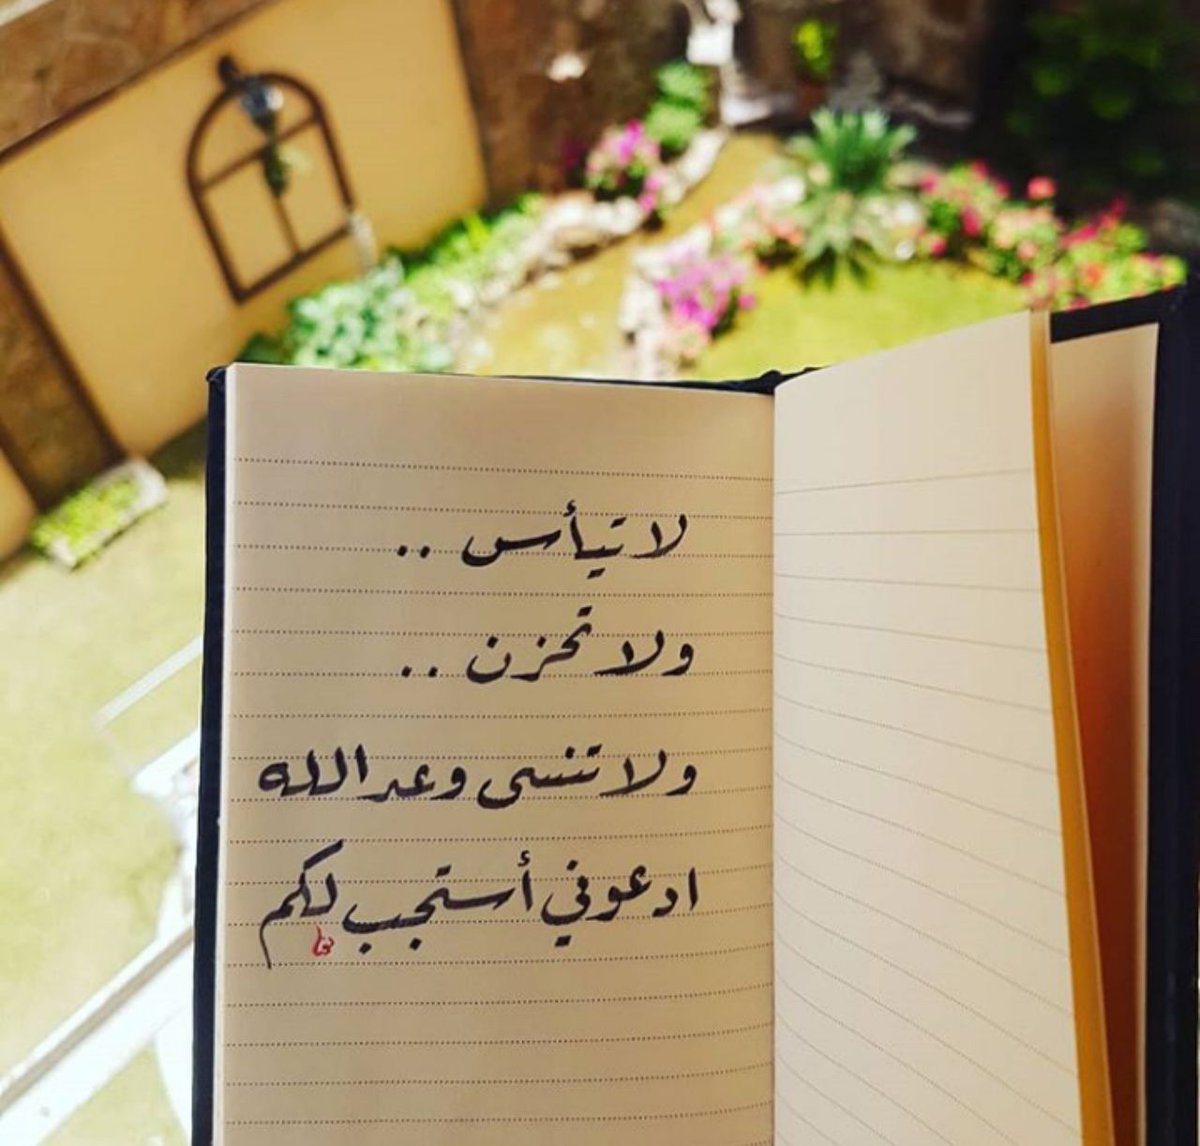 لا تيأس ..
ولا تحزن ..
ولا تنسى وعد الله
ادعوني أستجب لكم